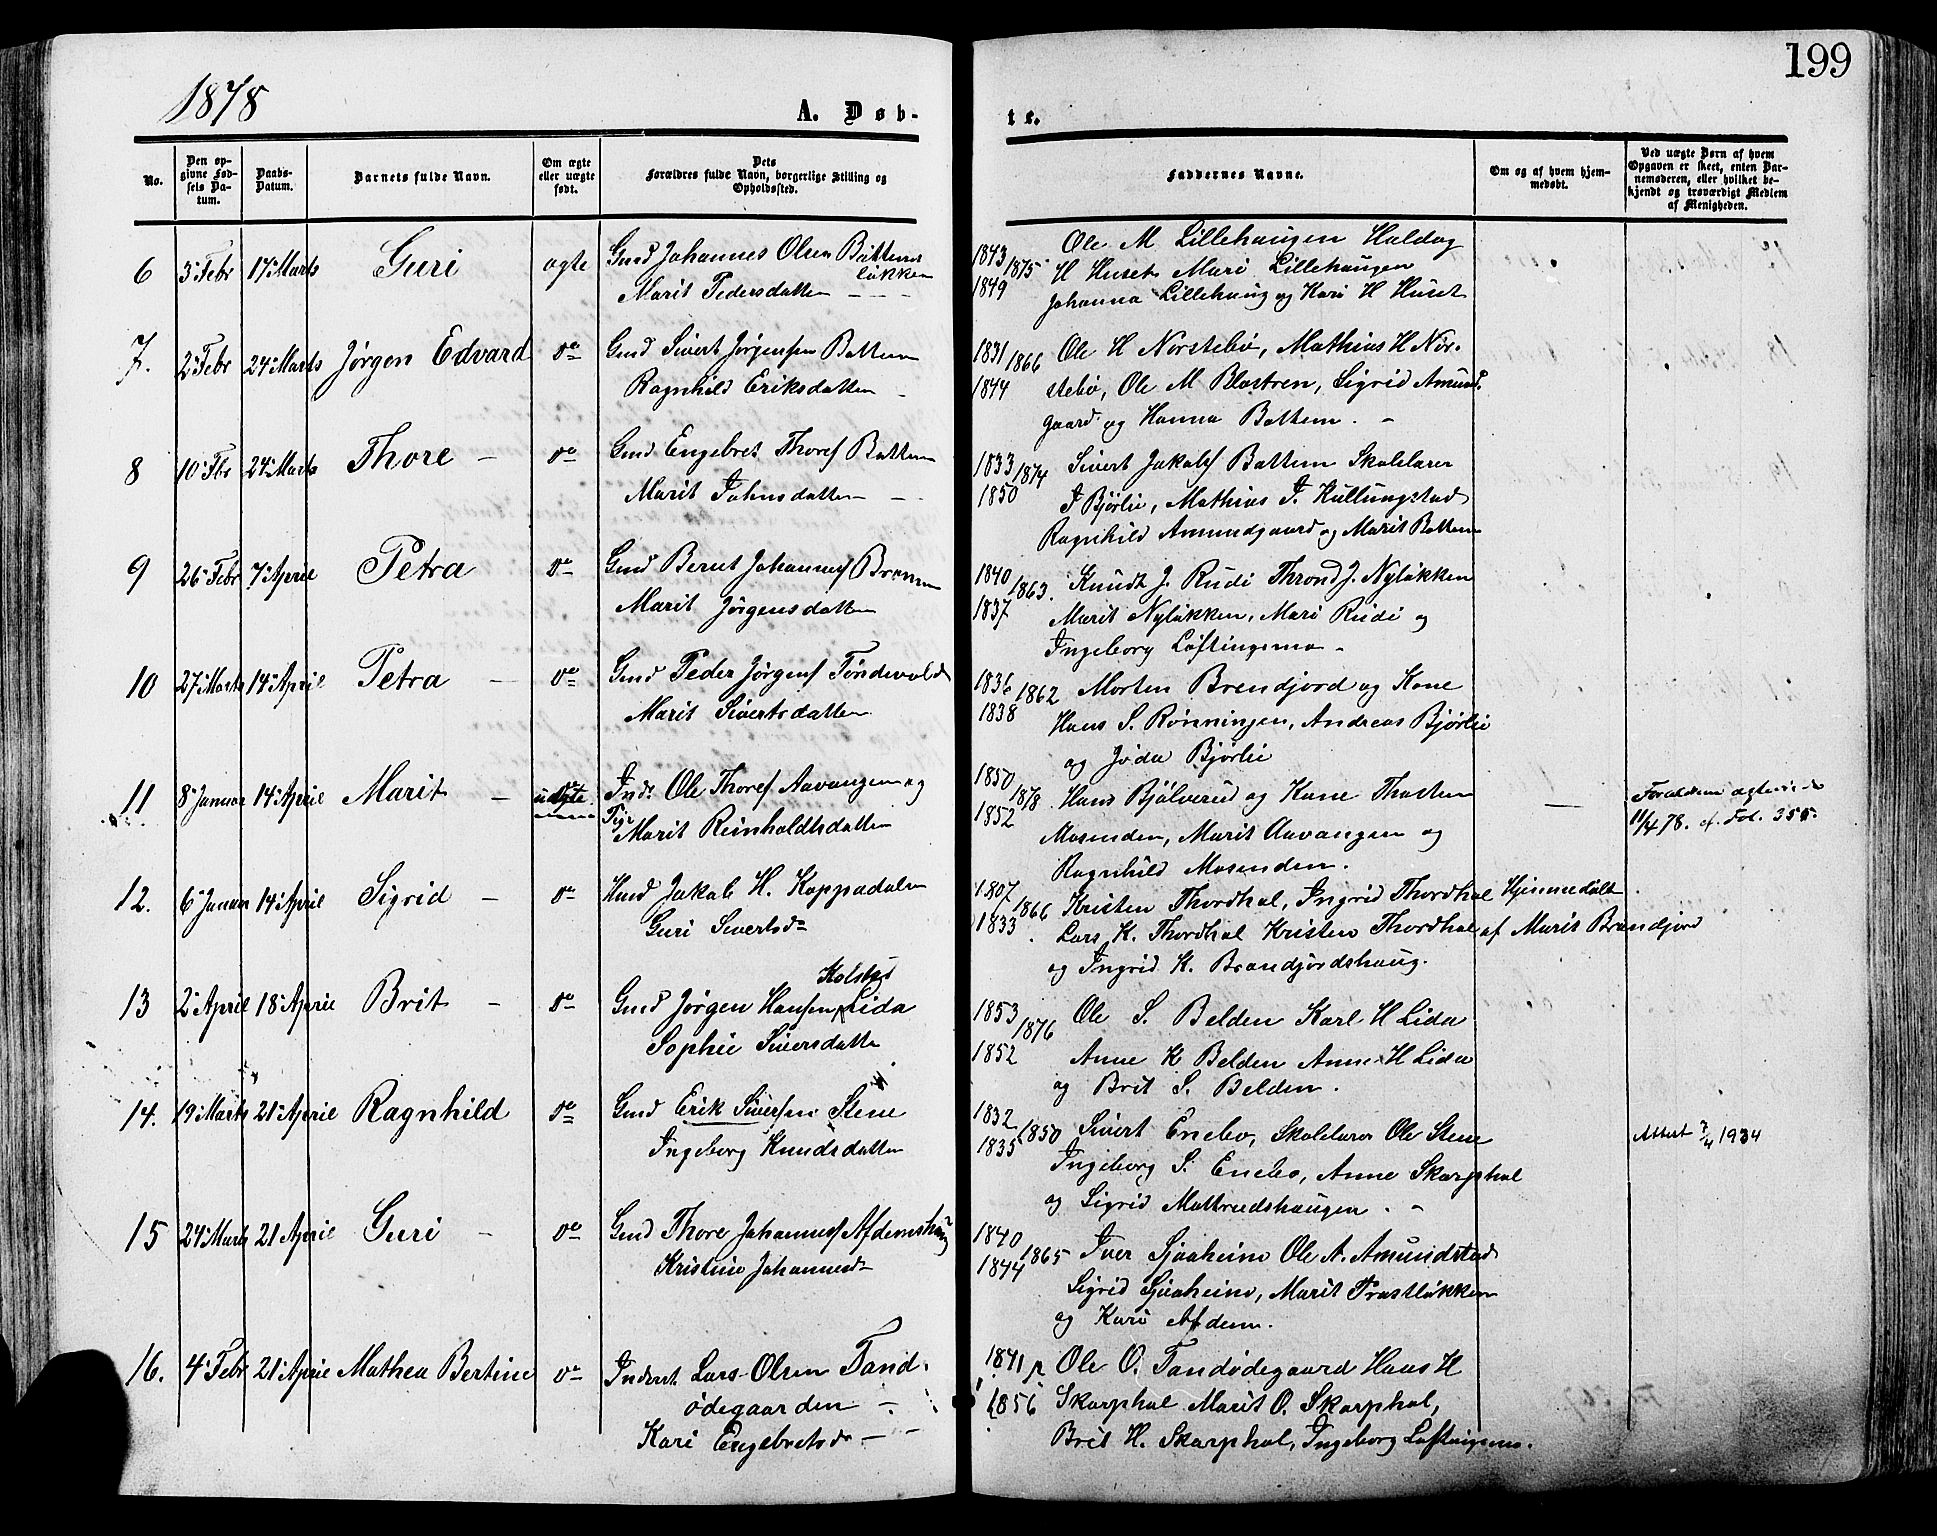 199
1878
A. Døb-
te.
No.
Den op-
givne Fød-
sels Da-
tum.
Daabs-
Datum.
Barnets fulde Navn.
Om ægte
eller uægte
født.
Dets
Forældres fulde Navn, borgerlige Stilling og
Opholdssted.
Faddernes Navne.
Om og af hvem hjem-
medøbt.
Ved uægte Børn af hvem
Opgaven er skeet, enten Bar-
nemoderen, eller hvilket be-
kjendt og troværdigt Medlem
af Menigheden.
6 3 Febr 17 Marts Guri ægte Gmd Johannes Olsen
løkken
Marit Pedersdatter
1843 1875 1849
Ole M Lillehaugen Haldog
H Huset Mari Lillehaugen
Johanna Lillehaug og Kari H Huset
7. 2 Febr 24 Marts Jørgen Edvard do Gmd Sivert Jørgensen Bottem
Ragnhild Eriksdatter
1831 1866 1844
Ole H Norstebø, Mathias H Nor-
stebø, Ole M Blostren, Sigrid Amund-
gaard og Hanna Bottem.
8 10 Fbr 24 Marts Thore do Gmd Engebret Thores Bottem
Marit Johnsdatter
1833 1874 1850
Sivert Jakobs Bottem Skolelærer
J Bjørlie, Mathias J. Kullungstad
Ragnhild Amundgaard og Marit Bottem
9 26 Febr 7 April Petra do Gmd Bernt Johannes
Marit Jørgensdatter
1840 1863. 1837
Knudt J. Rudi Thrond J. Nyløkken
Marit Nyløkken, Mari Rudi og
Ingeborg Løftingsmo
10 27 Marts 14 April Petra do Gmd Peder Jørgens Tøndevold
Marit Sivertsdatter
1836 1862 1838
Morten Brendjord og Kone
Hans S. Rønningen, Andreas Bjørlie
og Joda Bjørlie
11 8 Januar 14 April Marit uægte Inds. Ole Thores Aavangen og
Pige
Marit Reinholdtsdatter
1850 1878 1852
Hans Bjølverud og Kone Thosten
Mosenden, Marit Aavangen og
Ragnhild Mosenden.
Forældrene ægteviede
11/4 78. cf. Fol. 355.
12. 6 Januar 14 April Sigrid do Hmd Jakob H. Koppadalen
Guri Sivertsd
1807 1866 1833
Kristen Thordhol, Ingrid Thordhol Hjemmedøbt
Lars K. Thordhol Kristen Thordhol af Marit Brandjord
og Ingrid K. Brandjordshaug.
13 2 April 18 April Brit do Gmd Jørgen Hansen Lida
Sophie Siversdatter
1853 1876 1852
Ole S. Belden Karl H Lida
Anne K Belden Anne H Lida
og Brit S. Belden.
14. 19 Marts 21 April Ragnhild do Gmd Erik Siversen Stene
Ingeborg Knudsdatter
1832 1850 1835
Sivert Enebo, Skolelærer Ole Stene
Ingeborg S. Enebo, Anne Skarphol
og Sigrid Mattrudshaugen.
Attest 7/4 1934
15 24 Marts 21 April Guri do Gmd Thore Johannes Afdemshaug
Kristine Johannesd
1840 1865 1844
Iver Sjoaheim Ole A. Amundstad
Sigrid Sjoaheim, Marit Trostløkken
og Kari Afdem.
16. 4 Febr 21 April Mathea Bertine do Inderst Lars Olsen Tand-
ødegaarden
Kari Engebretsd
1841 1856
Ole O. Tandødegaard Hans H
Skarphol Marit O. Skarphol,
Brit H. Skarphol, Ingeborg Løftingsmo.